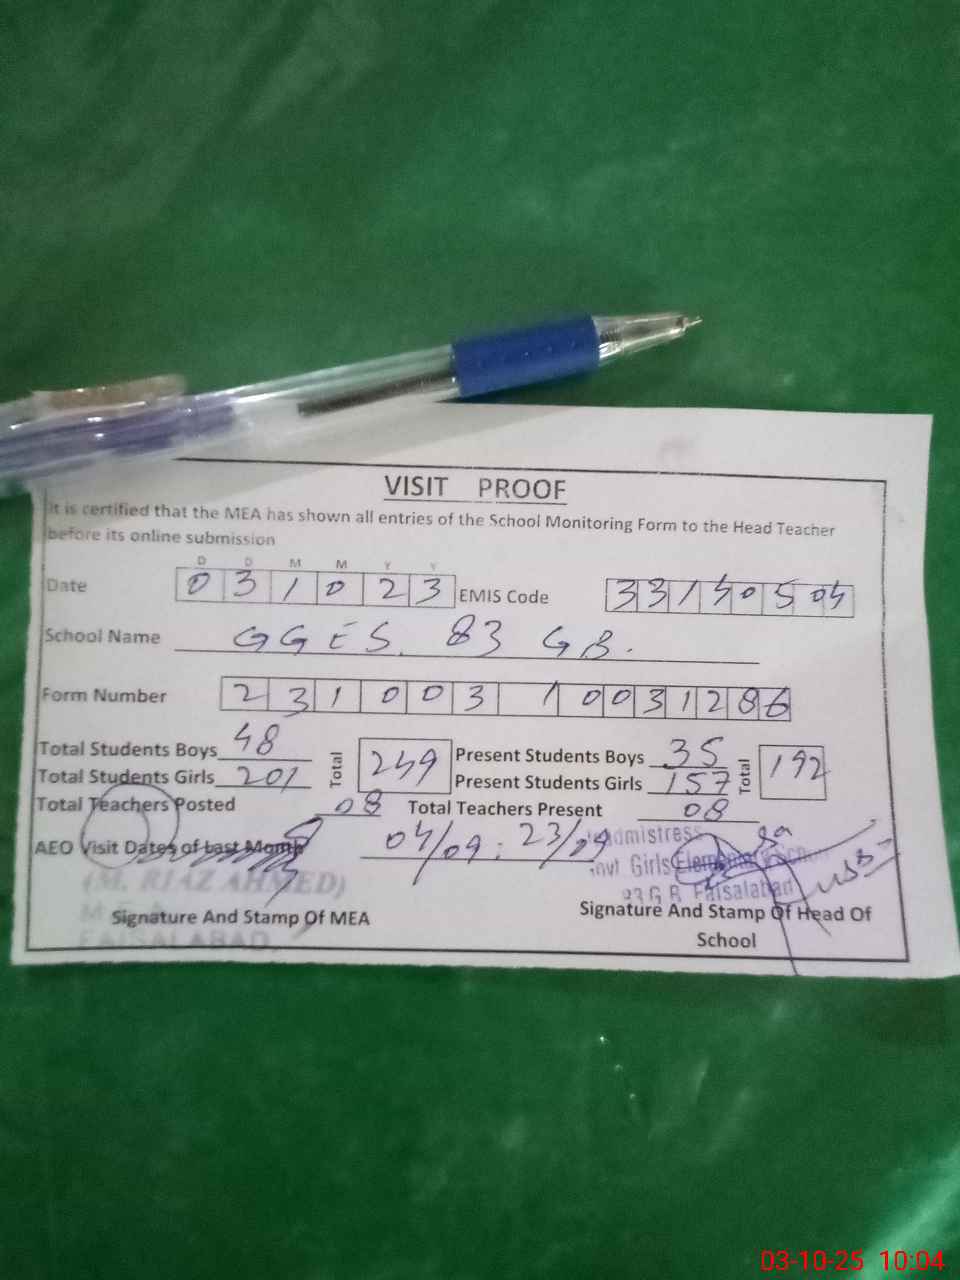 VISIT PROOF
It is certified that the MEA has shown all entries of the School Monitoring Form to the Head Teacher
before its online submission
D D M M Y Y
Date 0 3 1 0 2 3 EMIS Code 3 3 1 3 0 5 04
School Name GGES. 83 GB.
Form Number 2 3 1 0 0 3 1 0 0 3 1 2 8 6
Total Students Boys 48 Total 249 Present Students Boys 35 Total 192
Total Students Girls 201 Present Students Girls 157
Total Teachers Posted 08 Total Teachers Present 08
AEO Visit Dates of Last Month 04/09 : 23/09
Girls Elementary
83 G B Faisalabad
(M. RIAZ AHMED)
M E A
FAISALABAD.
Signature And Stamp Of MEA Signature And Stamp Of Head Of
School
03-10-25 10:04